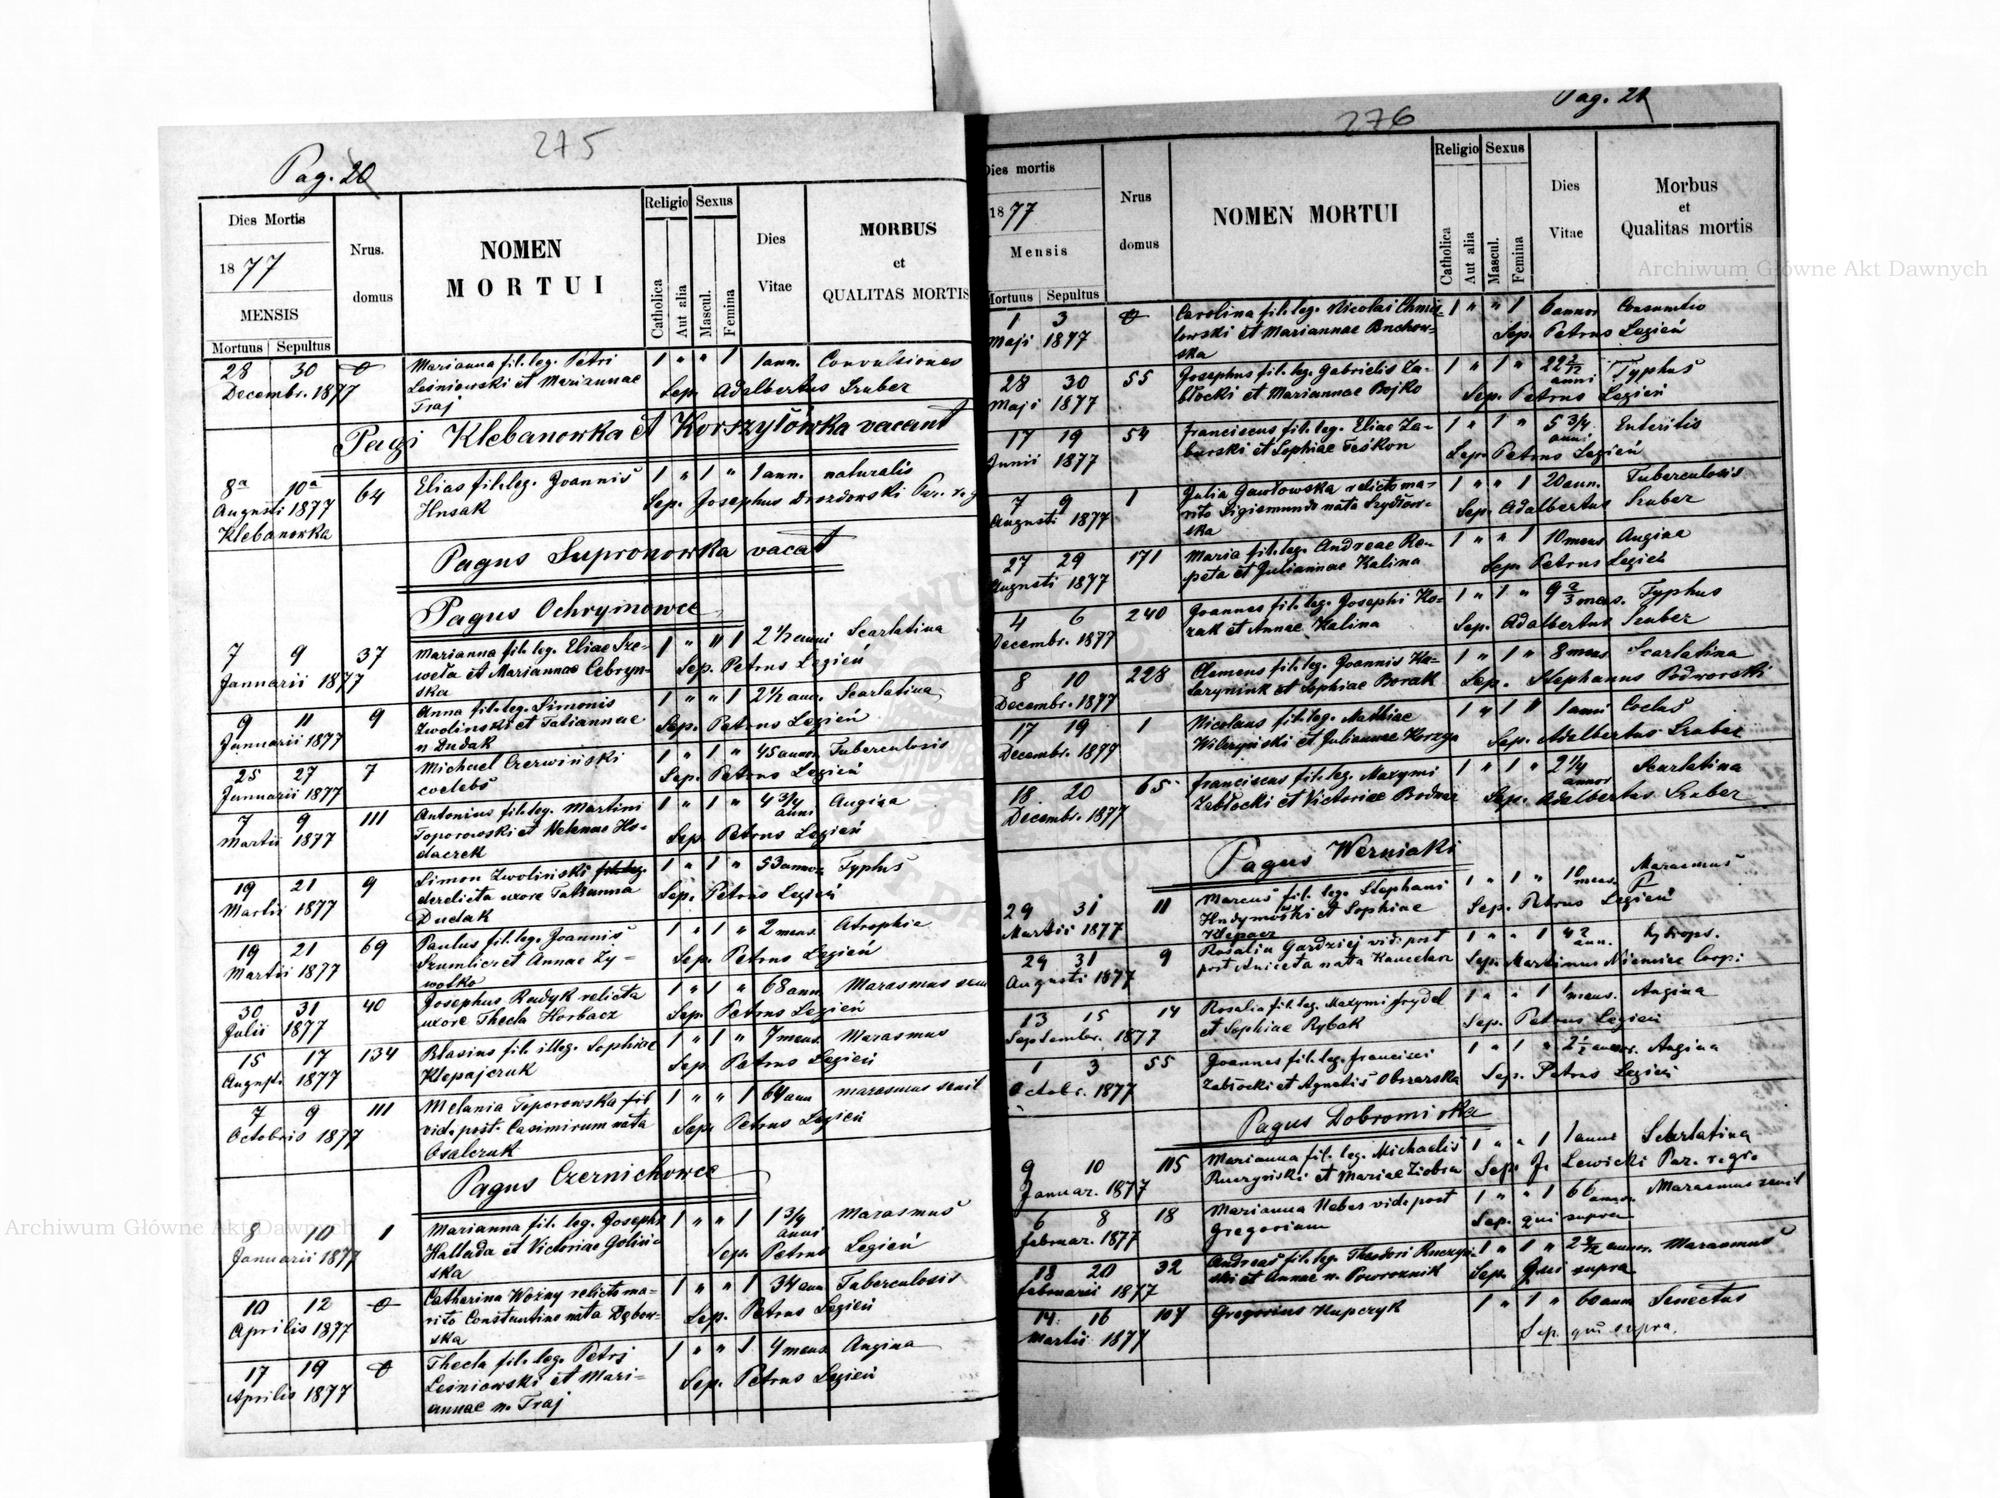 275
Pag. 20
Dies Mortis
1877
MENSIS
Mortuus Sepultus
Nrus.
domus
NOMEN
MORTUI
Religio
Catholica
Aut alia
Sexus
Mascul.
Femina
Dies
Vitae
MORBUS
et
QUALITAS MORTIS
28 30 Marianna fil. leg. Petri 1 " " 1 1 ann. Convulsiones
Decembr. 1877 Leśniowski et Mariannae Sep. Adalbertus Szuber
Traj
Pagi Klebanowka et Korszyłówka vacant
8a 10a 64 Elias fil. leg. Joannis 1 " 1 " 1 ann. naturalis
Augusti 1877 Husak Sep. Josephus Drozdowski Par. r. g
Klebanowka
Pagus Supronowka vacat
Pagus Ochrymowce
7 9 37 Marianna fil. leg. Eliae Sze- 1 " " 1 2 1/2 anni Scarlatina
Januarii 1877 weta et Mariannae Cebryn- Sep. Petrus Legień
ska
9 11 9 Anna fil. leg. Simonis 1 " " 1 2 1/2 ann. Scarlatina
Januarii 1877 Zwolinski et Tatiannae Sep. Petrus Legień
n Dudak
25 27 7 Michael Czerwiński 1 " 1 " 45 annor. Tuberculosis
Januarii 1877 coelebs Sep. Petrus Legień
7 9 111 Antonius fil. leg. Martini 1 " 1 " 4 3/4 anni Angina
Martii 1877 Toporowski et Helenae Ho- Sep. Petrus Legień
daczek
19 21 9 Simon Zwoliński fil. leg. 1 " 1 " 53 annor. Typhus
Martii 1877 derelicta uxore Tatianna Sep. Petrus Legień
Dudak
19 21 69 Paulus fil. leg. Joannis 1 " 1 " 2 mens. Atrophia
Martii 1877 Szumlicz et Annae Zy- Sep. Petrus Legień
wotko
30 31 40 Josephus Rudyk relicta 1 " 1 " 68 ann. Marasmus seni
Julii 1877 uxore Thecla Horbacz Sep. Petrus Legień
15 17 134 Blasius fil. illeg. Sophiae 1 " 1 " 7 mens. Marasmus
Augusti 1877 Klepajczuk Sep. Petrus Legień
7 9 111 Melania Toporowska fil 1 " " 1 64 ann marasmus senil
Octobris 1877 vid. post. Casimirum nata Sep. Petrus Legień
Osalczuk
Pagus Czernichowce
8 10 1 Marianna fil. leg. Josephi 1 " " 1 1 3/4 anni Marasmus
Januarii 1877 Hallada et Victoriae Golini- Sep. Petrus Legień
ska
10 12 Catharina Woźny relicto ma- 1 " " 1 34 ann Tuberculosis
Aprilis 1877 rito Constantino nata Dębow- Sep. Petrus Legień
ska
17 19 Thecla fil. leg. Petri 1 " " 1 4 mens. Angina
Aprilis 1877 Leśniowski et Mari- Sep. Petrus Legień
annae n. Traj
276
Pag. 21
Dies mortis
1877
Mensis
Mortuus Sepultus
Nrus
domus
NOMEN MORTUI
Religio
Catholica
Aut alia
Sexus
Mascul.
Femina
Dies
Vitae
Morbus
et
Qualitas mortis
1 3 Carolina fil. leg. Nicolai Chmie- 1 " " 1 6 annor Consumtio
Maji 1877 lowski et Mariannae Buchow- Sep. Petrus Legień
ska
28 30 55 Josephus fil. leg. Gabrielis Za- 1 " 1 " 22 2/12 anni Typhus
Maji 1877 błocki et Mariannae Bojko Sep. Petrus Legień
17 19 54 Franciscus fil. leg. Eliae Za- 1 " 1 " 5 3/4 anni Enteritis
Junii 1877 burski et Sophiae Feskon Sep. Petrus Legień
7 9 1 Julia Gawłowska relicto ma- 1 " " 1 20 ann. Tuberculosis
Augusti 1877 rito Sigismundo nata Szydłow- Sep. Adalbertus Szuber
ska
27 29 171 Maria fil. leg. Andreae Re- 1 " " 1 10 mens Angina
Augusti 1877 peta et Juliannae Kalina Sep. Petrus Legień
4 6 240 Joannes fil. leg. Josephi Ko- 1 " 1 " 9 2/3 mens. Typhus
Decembr. 1877 zak et Annae Kalina Sep. Adalbertus Szuber
8 10 228 Clemens fil. leg. Joannis Ka- 1 " 1 " 8 mens Scarlatina
Decembr. 1877 et Sophiae Borak Sep. Stephanus Podworski
17 19 1 Nicolaus fil. leg. Mathiae 1 " 1 " 1 anni Coelus
Decembr. 1877 Wilczyński et Juliannae Korzya Sep. Adalbertus Szuber
18 20 65 Franciscus fil. leg. Maxymi 1 " 1 " 2 1/4 annor Scarlatina
Decembr. 1877 Zabłocki et Victoriae Bodnar Sep. Adalbertus Szuber
Pagus Werniaki
29 31 11 Marcus fil. leg. Stephani 1 " 1 " 10 mens. Marasmus
Martii 1877 Hudymowski et Sophiae Sep. Petrus Legień
Klepacz
29 31 9 Rosalia Gardziej vid. post 1 " " 1 42 ann. hydrops.
Augusti 1877 post Aniceta nata Sep. Martinus Niemiec Coop:
13 15 14 Rosalia fil. leg. Maxymi Frydel 1 " " 1 1 mens. Angina
Septembr. 1877 et Sophiae Rybak Sep. Petrus Legień
1 3 55 Joannes fil. leg. Francisci 1 " 1 " 2 1/2 annor. Angina
Octobr. 1877 Zabłocki et Agnetis Obszarska Sep. Petrus Legień
Pagus Dobromirka
9 10 115 Marianna fil. leg. Michaelis 1 " " 1 1 anni Scarlatina
Januar. 1877 Ruczyński et Mariae Ziobra Sep. J. Lewicki Par. r. gr.
6 8 18 Marianna Nebes vid. post 1 " " 1 66 annor. Marasmus senil
Februar. 1877 Gregorium Sep. qui supra
18 20 32 Andreas fil. leg. Theodori Ruczyn- 1 " 1 " annor. Marasmus
Februarii 1877 ski et Annae n. Powroznik Sep. Qui supra
14 16 107 Gregorius Hupczyk 1 " 1 " 60 ann Senectus
Martii 1877 Sep. qui supra.
Archiwum Główne Akt Dawnych
Archiwum Główne Akt Dawnych